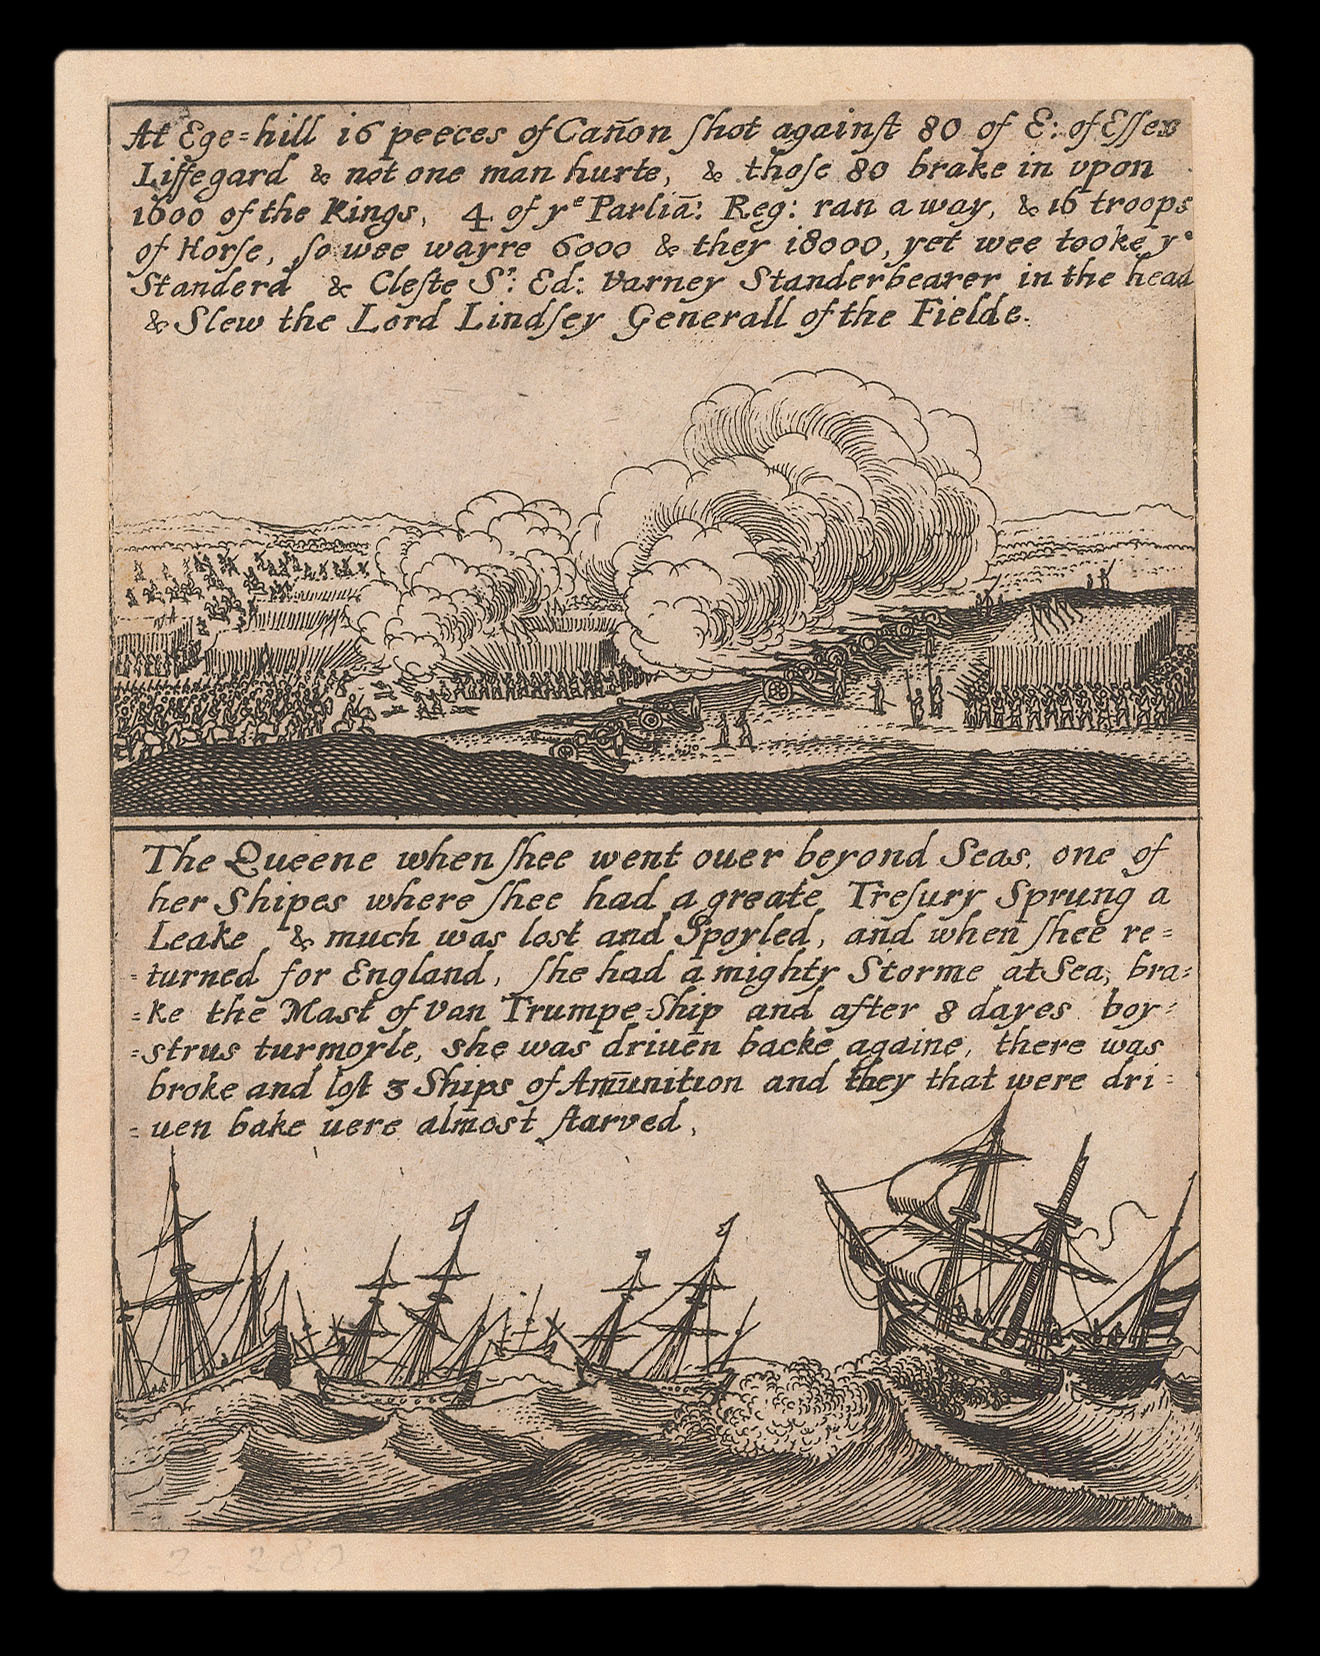 At Ege=hill 16 peeces of Cañon ſhot againſt 80 of E: of Eſſex
Liffegard & not one man hurte, & thoſe 80 brake in vpon
1600 of the Kings, 4 of yᵉ Parliā: Reg: ran a way, & 16 troops
of Horſe, ſo wee wayre 6000 & they 18000, yet wee tooke yᵉ
Standerd & Cleſte Sʳ: Ed: Varney Standerbearer in the head
& Slew the Lord Lindſey Generall of the Fielde.
The Queene when ſhee went ouer beyond Seas, one of
her Shipes where ſhee had a greate Treſury Sprung a
Leake, & much was lost and Spoyled, and when ſhee re=
=turned for England, ſhe had a mighty Storme at Sea, bra=
=ke the Mast of Van Trumpe Ship and after 8 dayes boy=
=strus turmoyle, she was driuēn backe againe, there was
broke and loſt 3 Ships of Amūnition and they that were dri=
=uen bake uere almost ſtarved,
2-280